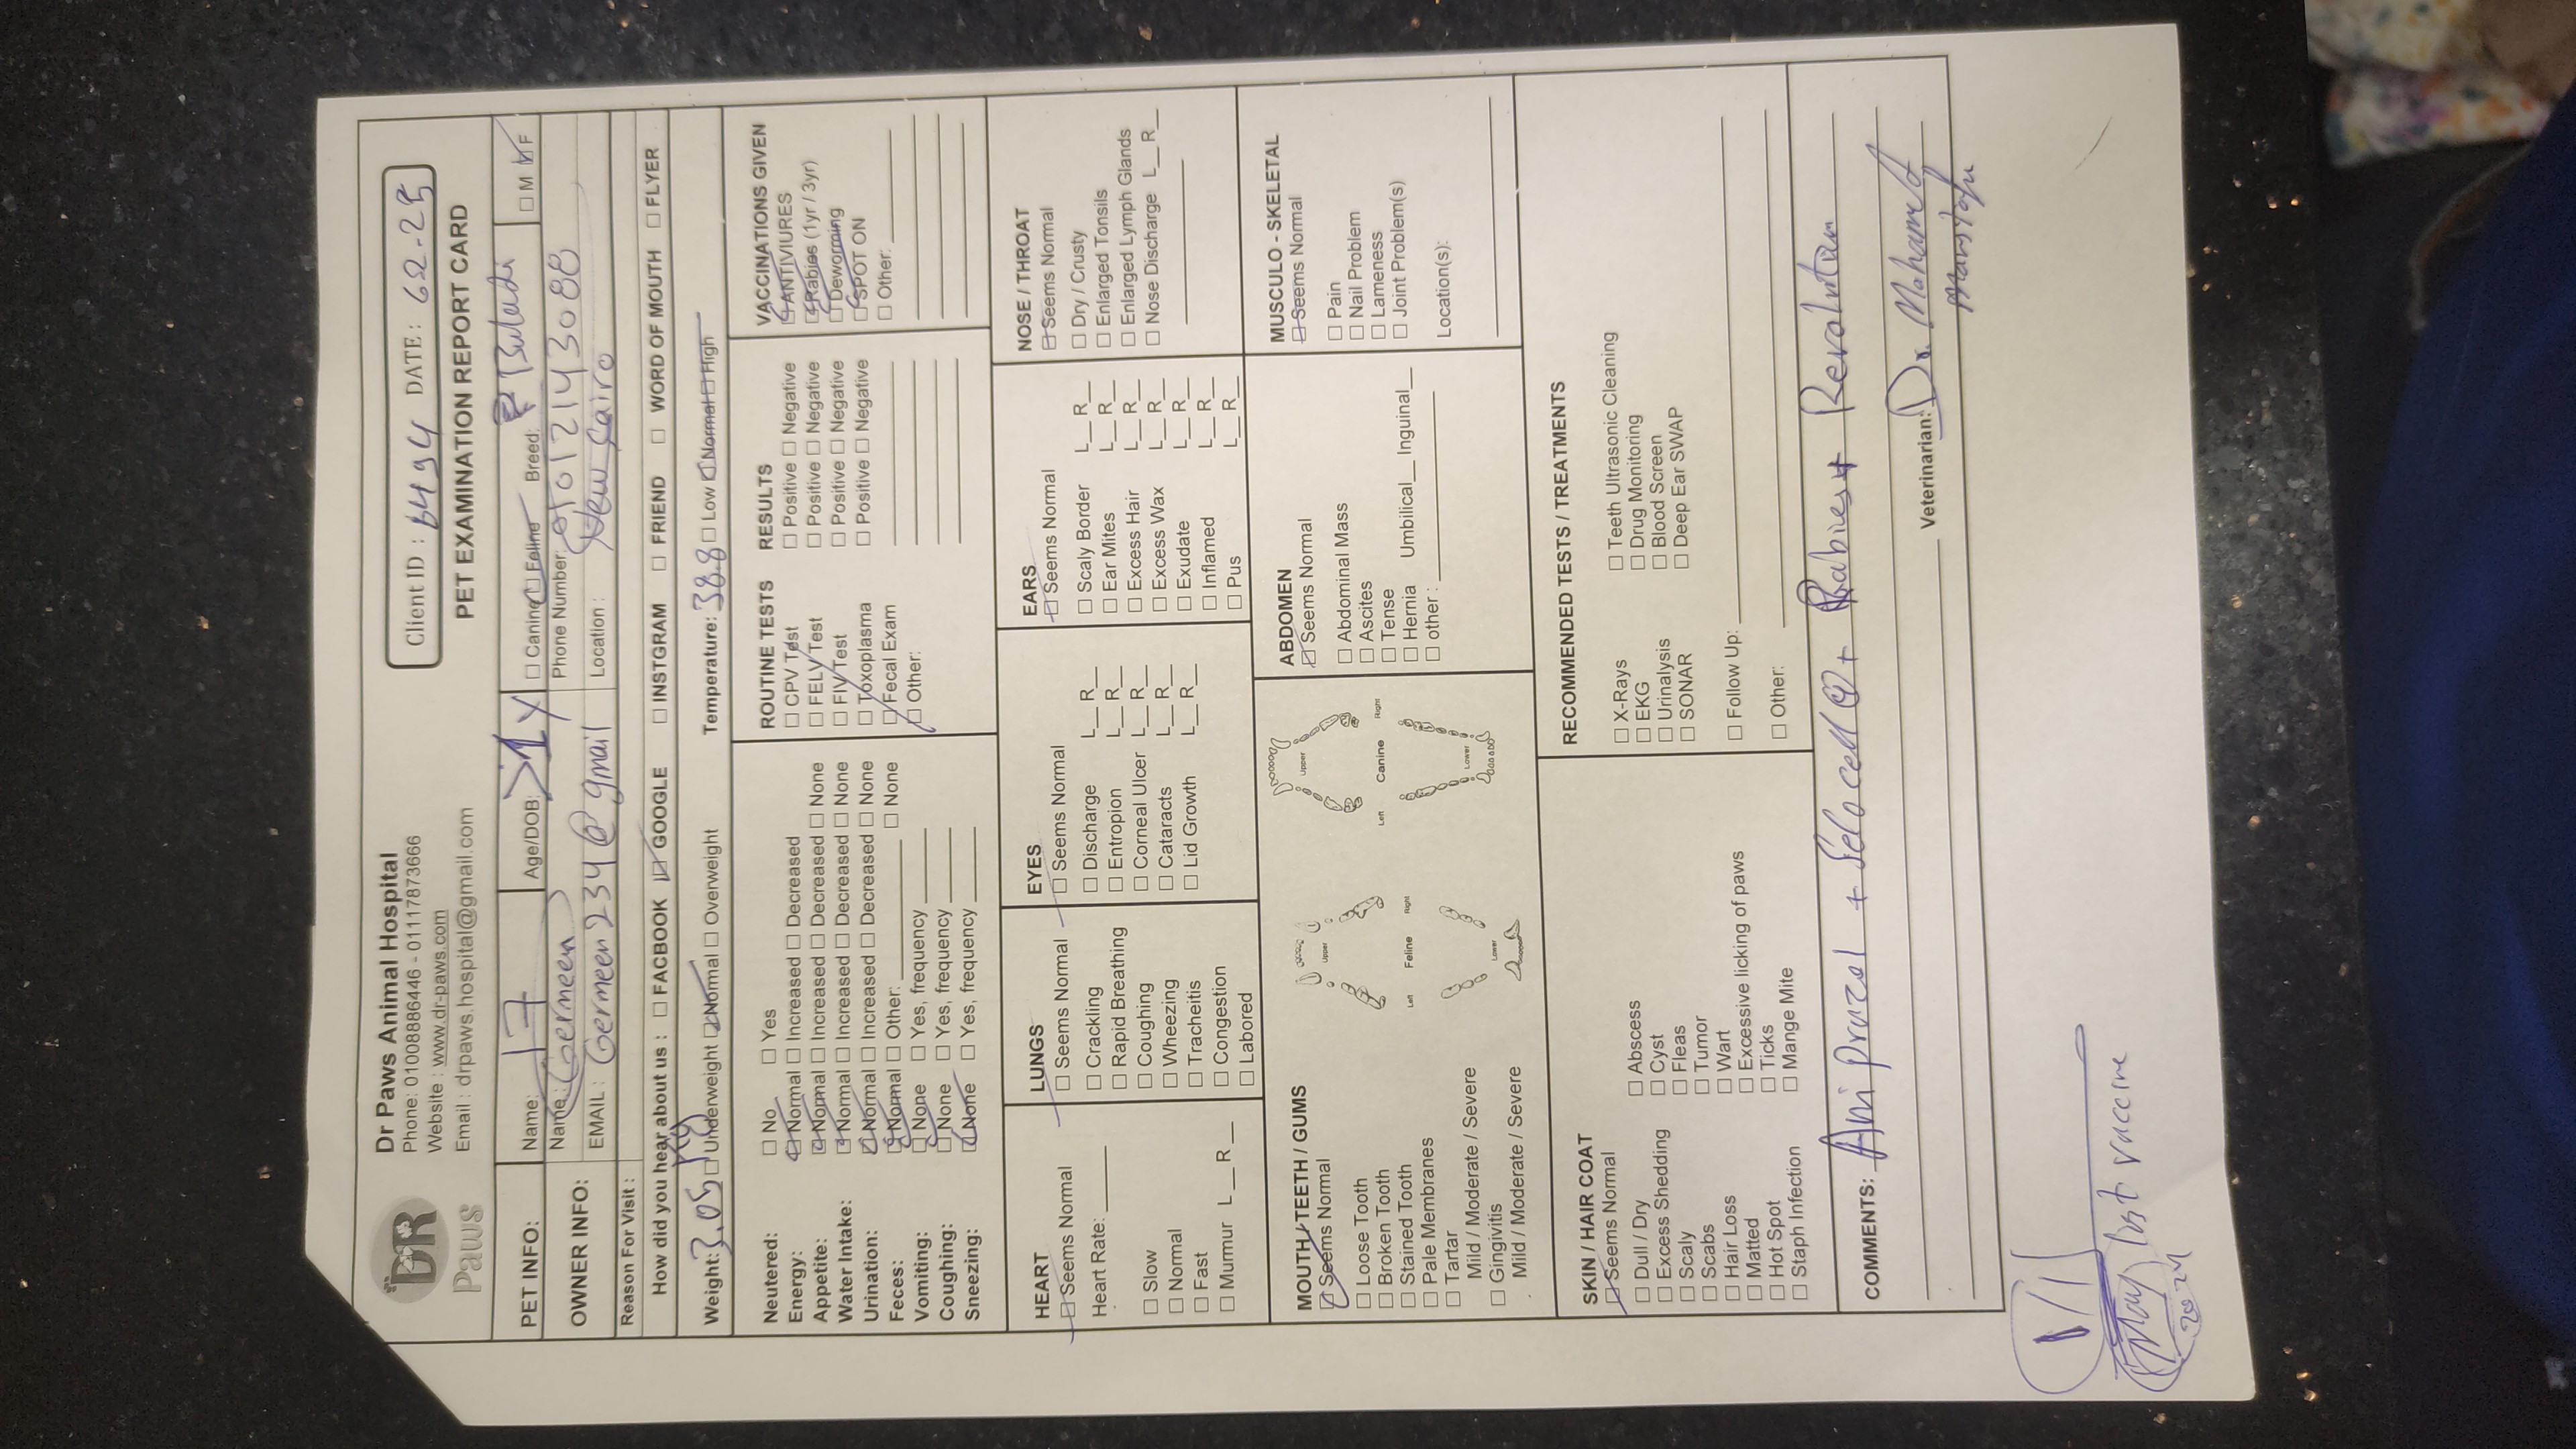 DR
Paws
Dr Paws Animal Hospital
Phone: 01008886446 - 01117873666
Website : www.dr-paws.com
Email : drpaws.hospital@gmail.com
Client ID : 6494 DATE : 62-25
PET EXAMINATION REPORT CARD
PET INFO: Name: Age/DOB: >1y □ Canine □ Feline Breed: Baladi □ M □ F
OWNER INFO: Name: Germeen Phone Number: 01012143088
EMAIL : Germeen234@gmail Location : New Cairo
Reason For Visit :
How did you hear about us : □ FACBOOK □ GOOGLE □ INSTGRAM □ FRIEND □ WORD OF MOUTH □ FLYER
Weight: 3.05 kg □ Underweight □ Normal □ Overweight Temperature: 38.8 □ Low □ Normal □ High
Neutered: □ No □ Yes
Energy: □ Normal □ Increased □ Decreased
Appetite: □ Normal □ Increased □ Decreased □ None
Water Intake: □ Normal □ Increased □ Decreased □ None
Urination: □ Normal □ Increased □ Decreased □ None
Feces: □ Normal □ Other: □ None
Vomiting: □ None □ Yes, frequency
Coughing: □ None □ Yes, frequency
Sneezing: □ None □ Yes, frequency
ROUTINE TESTS RESULTS
□ CPV Test □ Positive □ Negative
□ FELV Test □ Positive □ Negative
□ FIV Test □ Positive □ Negative
□ Toxoplasma □ Positive □ Negative
□ Fecal Exam
□ Other:
VACCINATIONS GIVEN
□ ANTIVIURES
□ Rabies (1yr / 3yr)
□ Deworming
□ SPOT ON
□ Other:
HEART
□ Seems Normal
Heart Rate:
□ Slow
□ Normal
□ Fast
□ Murmur L__R__
LUNGS
□ Seems Normal
□ Crackling
□ Rapid Breathing
□ Coughing
□ Wheezing
□ Tracheitis
□ Congestion
□ Labored
EYES
□ Seems Normal
□ Discharge L__R__
□ Entropion L__R__
□ Corneal Ulcer L__R__
□ Cataracts L__R__
□ Lid Growth L__R__
EARS
□ Seems Normal
□ Scaly Border L__R__
□ Ear Mites L__R__
□ Excess Hair L__R__
□ Excess Wax L__R__
□ Exudate L__R__
□ Inflamed L__R__
□ Pus L__R__
NOSE / THROAT
□ Seems Normal
□ Dry / Crusty
□ Enlarged Tonsils
□ Enlarged Lymph Glands
□ Nose Discharge L__R__
MOUTH / TEETH / GUMS
□ Seems Normal
□ Loose Tooth
□ Broken Tooth
□ Stained Tooth
□ Pale Membranes
□ Tartar
Mild / Moderate / Severe
□ Gingivitis
Mild / Moderate / Severe
Upper
Left Feline Right
Lower
Upper
Left Canine Right
Lower
ABDOMEN
□ Seems Normal
□ Abdominal Mass
□ Ascites
□ Tense
□ Hernia Umbilical__ Inguinal__
□ other :
MUSCULO - SKELETAL
□ Seems Normal
□ Pain
□ Nail Problem
□ Lameness
□ Joint Problem(s)
Location(s):
SKIN / HAIR COAT
□ Seems Normal
□ Dull / Dry
□ Excess Shedding
□ Scaly
□ Scabs
□ Hair Loss
□ Matted
□ Hot Spot
□ Staph Infection
□ Abscess
□ Cyst
□ Fleas
□ Tumor
□ Wart
□ Excessive licking of paws
□ Ticks
□ Mange Mite
RECOMMENDED TESTS / TREATMENTS
□ X-Rays
□ EKG
□ Urinalysis
□ SONAR
□ Teeth Ultrasonic Cleaning
□ Drug Monitoring
□ Blood Screen
□ Deep Ear SWAP
□ Follow Up:
□ Other:
COMMENTS: Ani prazel + Felocell 4 + Rabies + Revolution
Veterinarian: Dr. Mohamed
last vaccine
May
2024